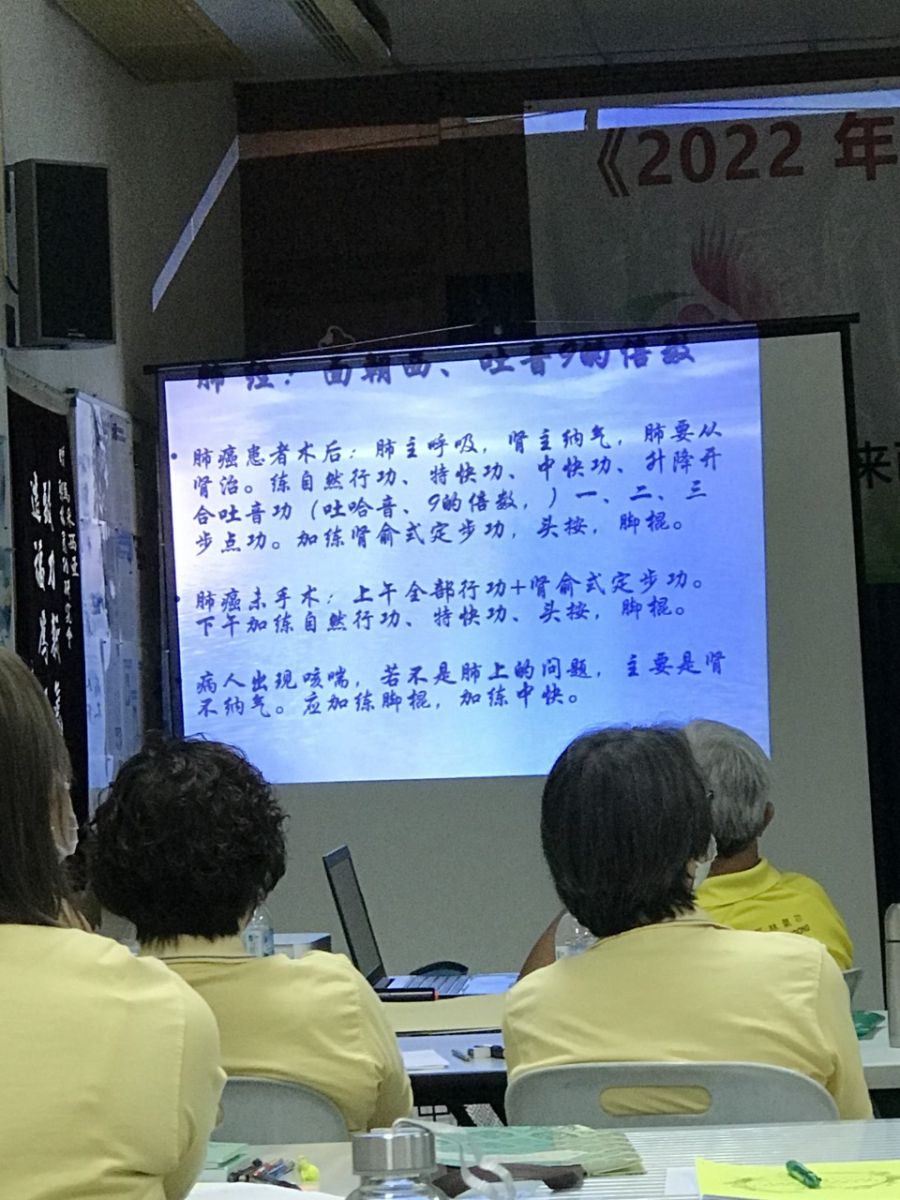 《2022 年
来西
肺 经：面朝西、吐音9的倍数
肺癌患者术后：肺主呼吸，肾主纳气，肺要从
肾治。练自然行功、特快功、中快功、升降开
合吐音功（吐哈音、9的倍数，）一、二、三
步点功。加练肾俞式定步功，头按，脚棍。
肺癌未手术：上午全部行功+肾俞式定步功。
下午加练自然行功、特快功、头按，脚棍。
病人出现咳喘，若不是肺上的问题，主要是肾
不纳气。应加练脚棍，加练中快。